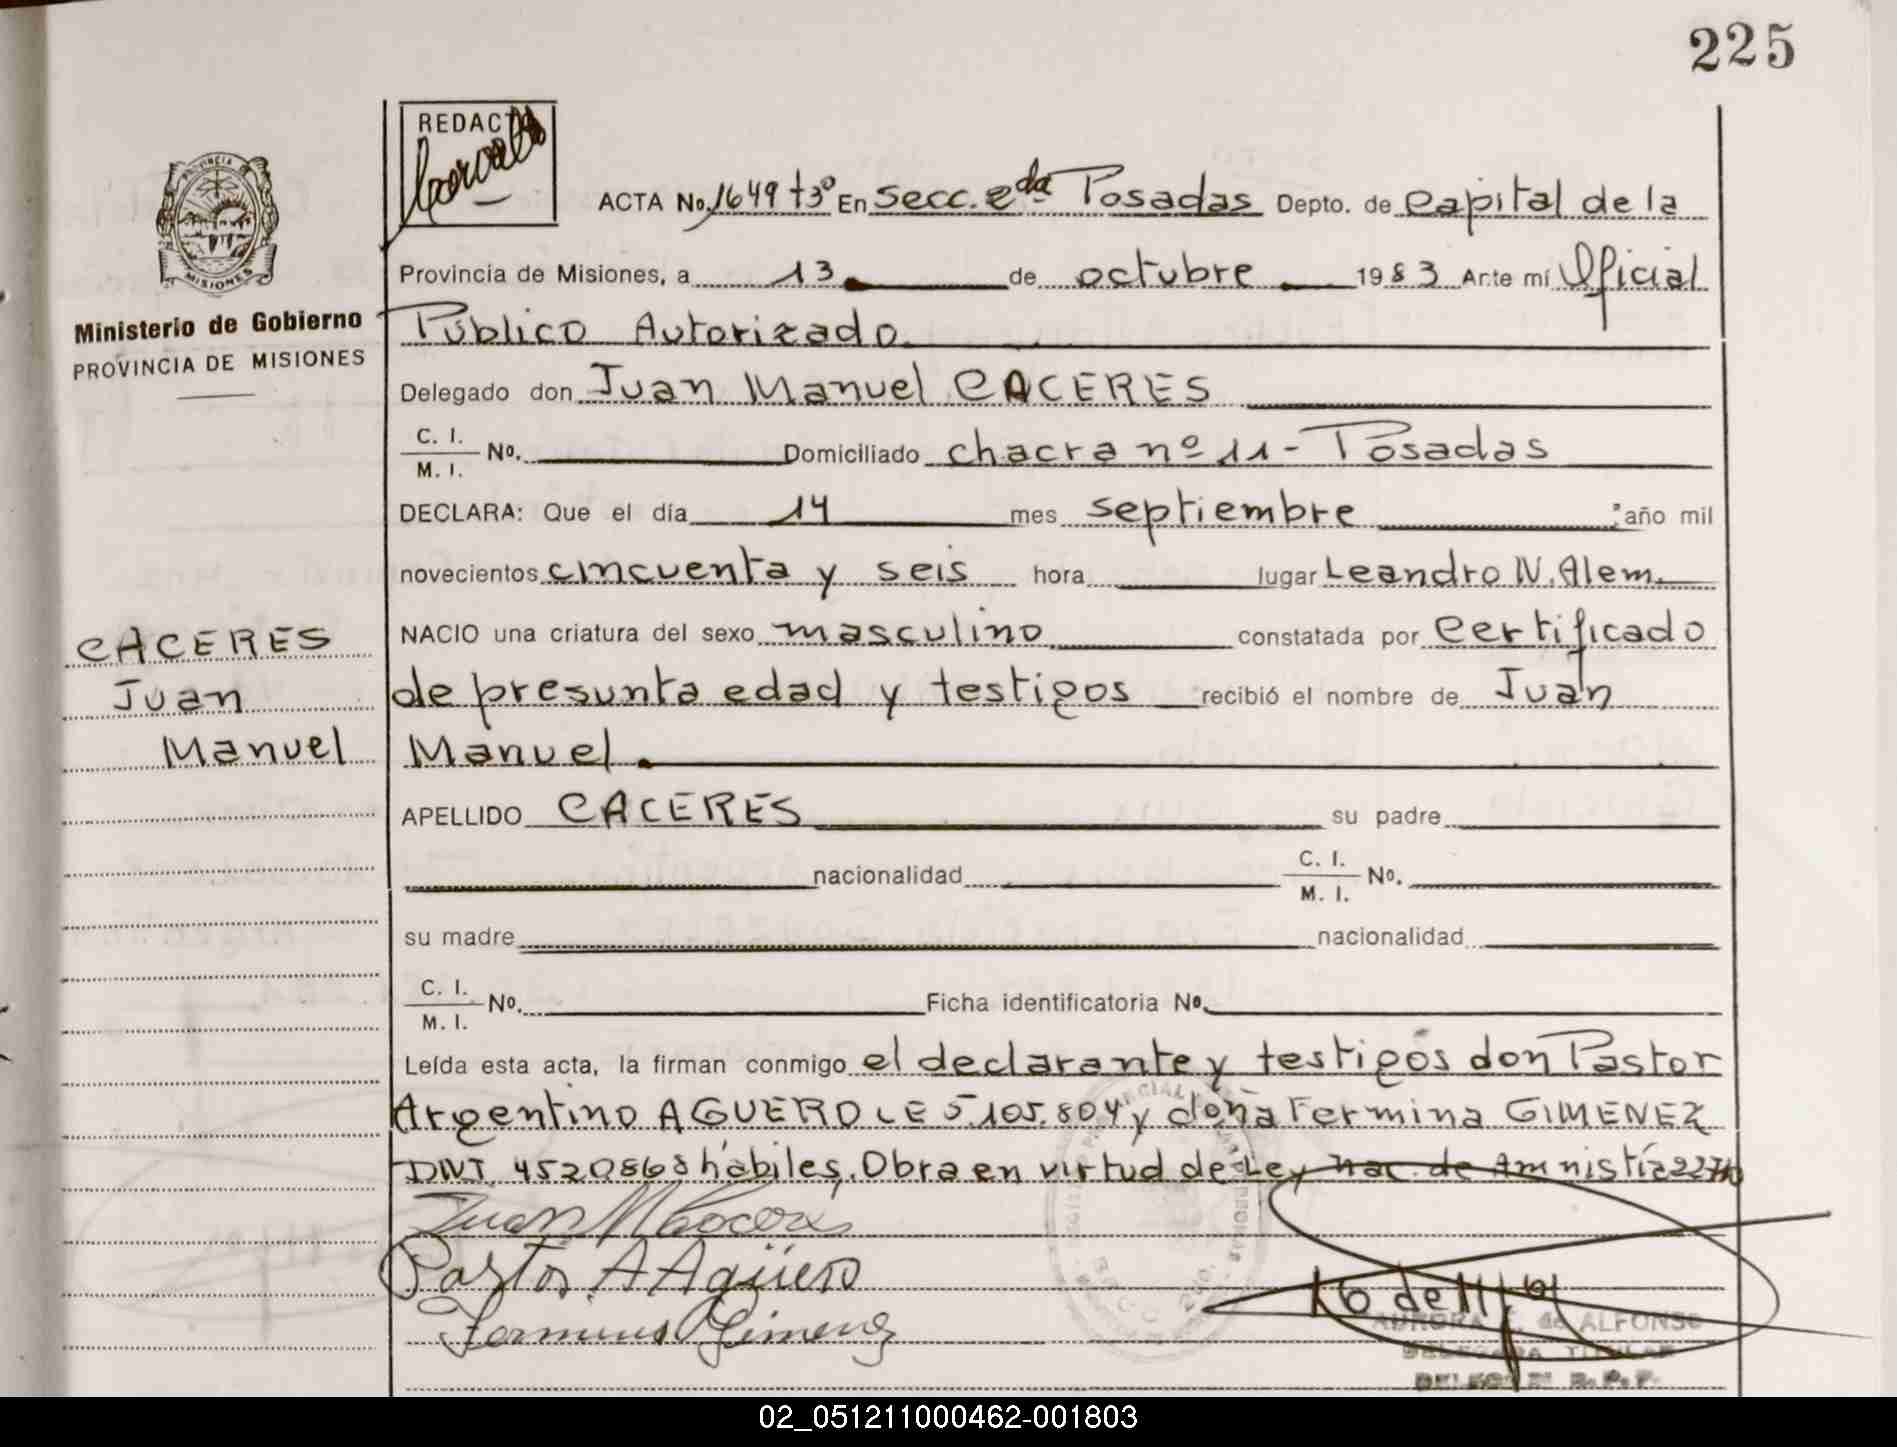 225
REDACT
ACTA No. 1649 t3º En Secc. 2da Posadas Depto. de Capital de la
Provincia de Misiones, a 13 de octubre 1983 Ante mí Oficial
Público Autorizado
Delegado don Juan Manuel CACERES
C. I. / M. I. No. Domiciliado chacra nº 11 - Posadas
DECLARA: Que el día 14 mes septiembre año mil
novecientos cincuenta y seis hora lugar Leandro N. Alem.
NACIO una criatura del sexo masculino constatada por certificado
de presunta edad y testigos recibió el nombre de Juan
Manuel.
APELLIDO CACERES su padre
nacionalidad C. I. / M. I. No.
su madre nacionalidad
C. I. / M. I. No. Ficha identificatoria No.
Leída esta acta, la firman conmigo el declarante y testigos don Pastor
Argentino AGUERO LE 5.105.804 y doña Fermina GIMENEZ
DNI. 4520868 hábiles. Obra en virtud de Ley nac. de Amnistía
Juan M Caceres
Pastor A Agüero
Fermina Gimenez
AURORA de ALFONSO
DELEGADA TITULAR
PROVINCIA
MISIONES
Ministerio de Gobierno
PROVINCIA DE MISIONES
CACERES
Juan
Manuel
02_051211000462-001803